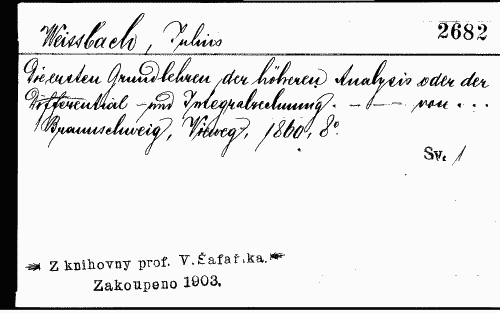 Weissbach, Julius 2682
Die ersten Grundlehren der höheren Analysis oder der
Differential- und Integralrechnung. — — von ...
Braunschweig, Vieweg, 1860, 8°.
Sv. 1
Z knihovny prof. V. Šafaříka.
Zakoupeno 1903.